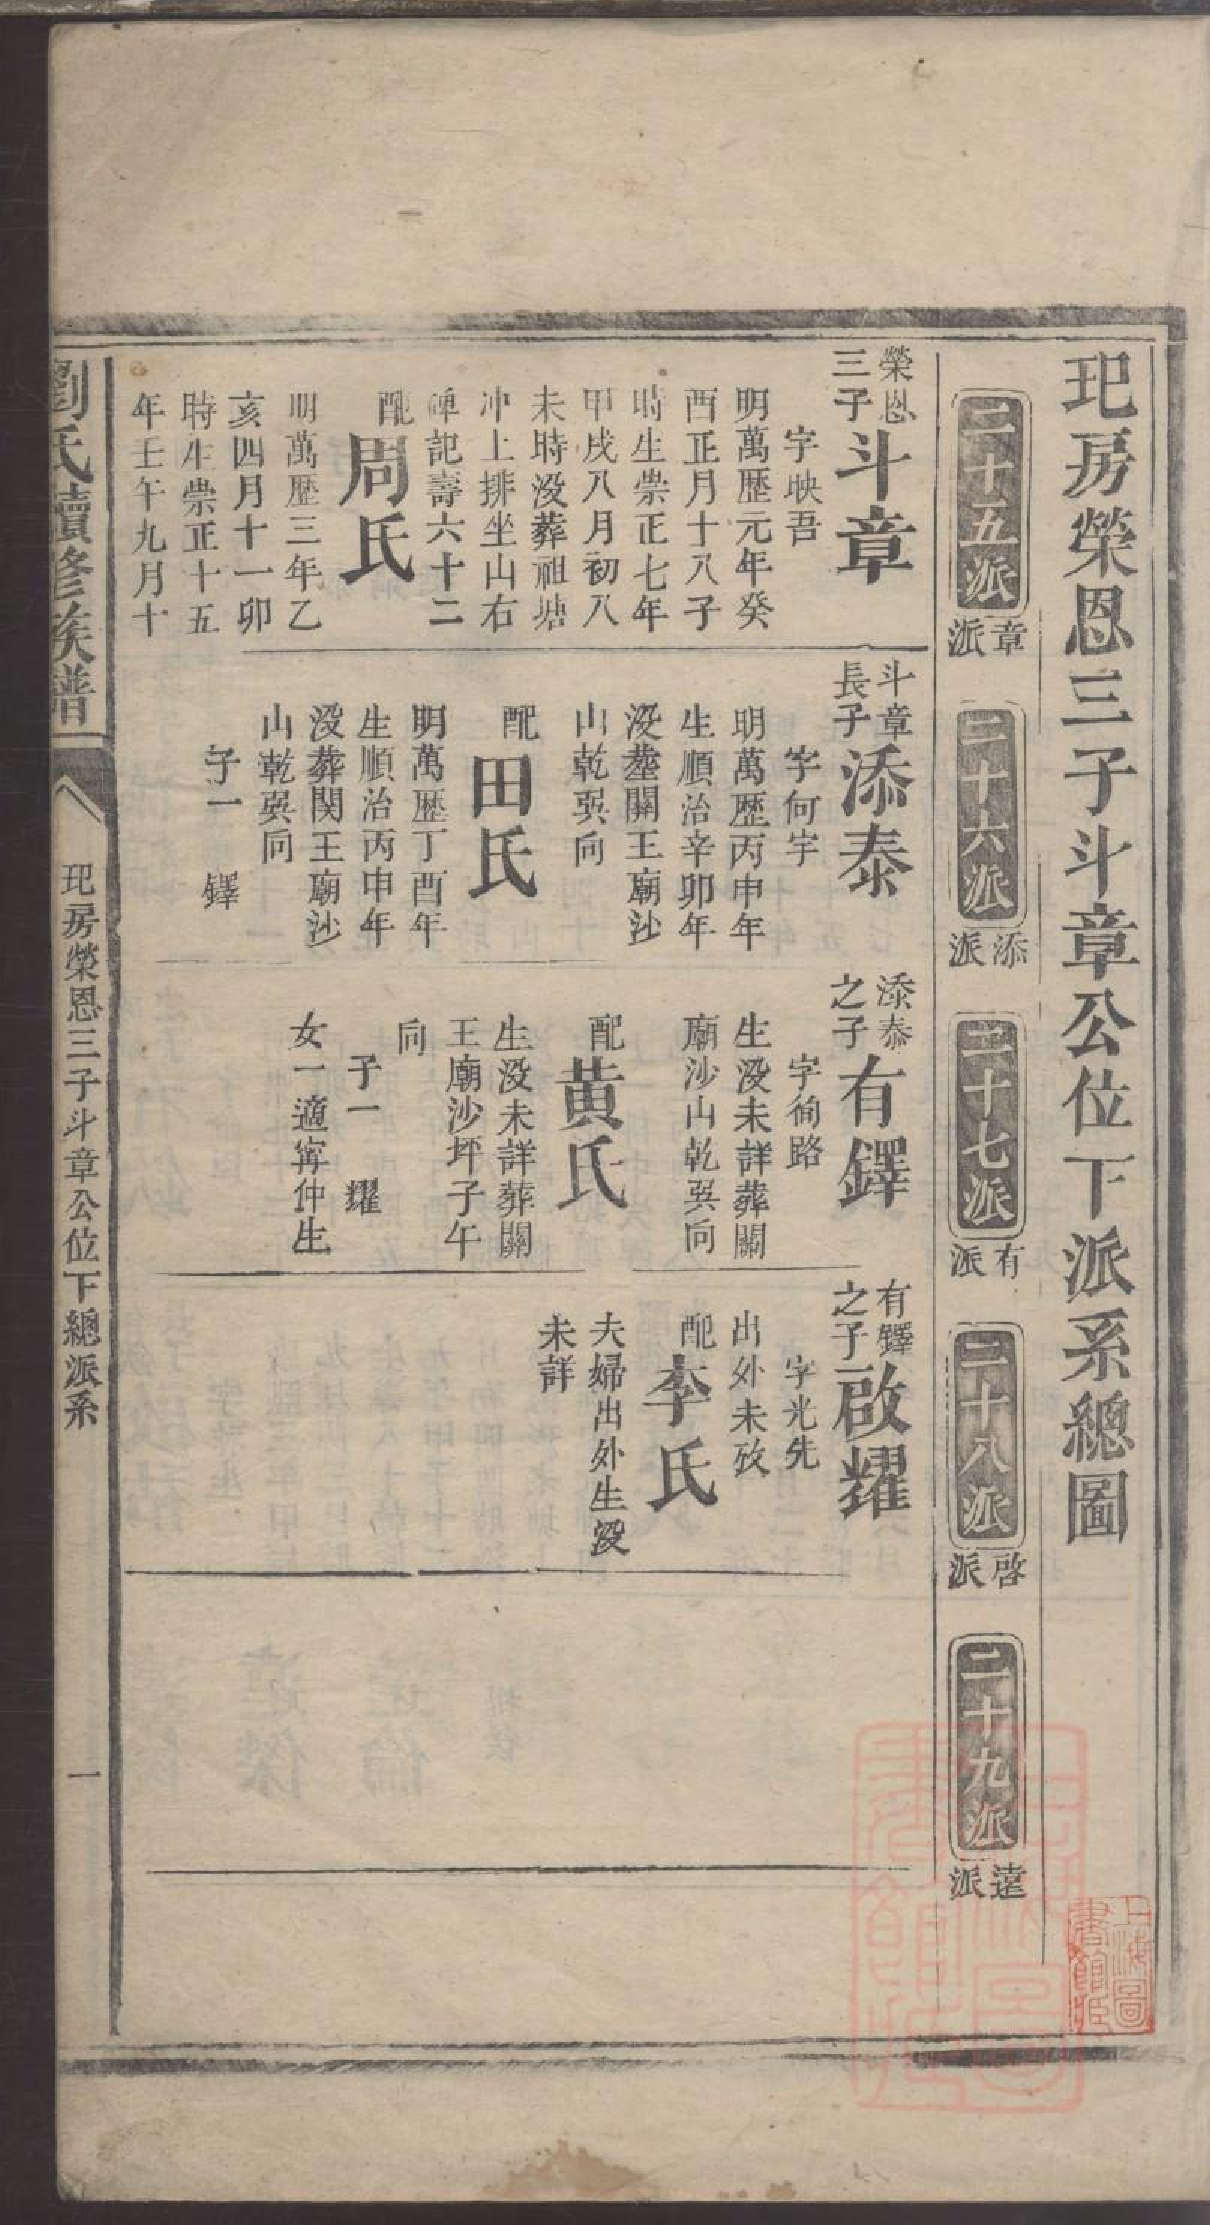 玘房榮恩三子斗章公位下派系總圖
二十五派
章派
二十六派
添派
二十七派
有派
二十八派
啓派
二十九派
達派
榮恩
三子
斗章
字映吾
明萬歷元年癸
酉正月十八子
時生崇正七年
甲戌八月初八
未時没葬祖塘
冲上排坐山右
碑記壽六十二
配
周氏
明萬歷三年乙
亥四月十一卯
時生崇正十五
年壬午九月十
斗章
長子
添泰
字何宇
明萬歷丙申年
生順治辛卯年
没塟關王廟沙
山乾巽向
配
田氏
明萬歷丁酉年
生順治丙申年
没葬関王廟沙
山乾巽向
子一 鐸
添泰
之子
有鐸
字徇路
生没未詳葬關
廟沙山乾巽向
配
黄氏
生没未詳葬關
王廟沙坪子午
向
子一 耀
女一適寗仲生
有鐸
之子
啟耀
字光先
出外未攷
配
李氏
夫婦出外生没
未詳
劉氏續修族譜
玘房榮恩三子斗章公位下總派系
一
上海圖
書館藏